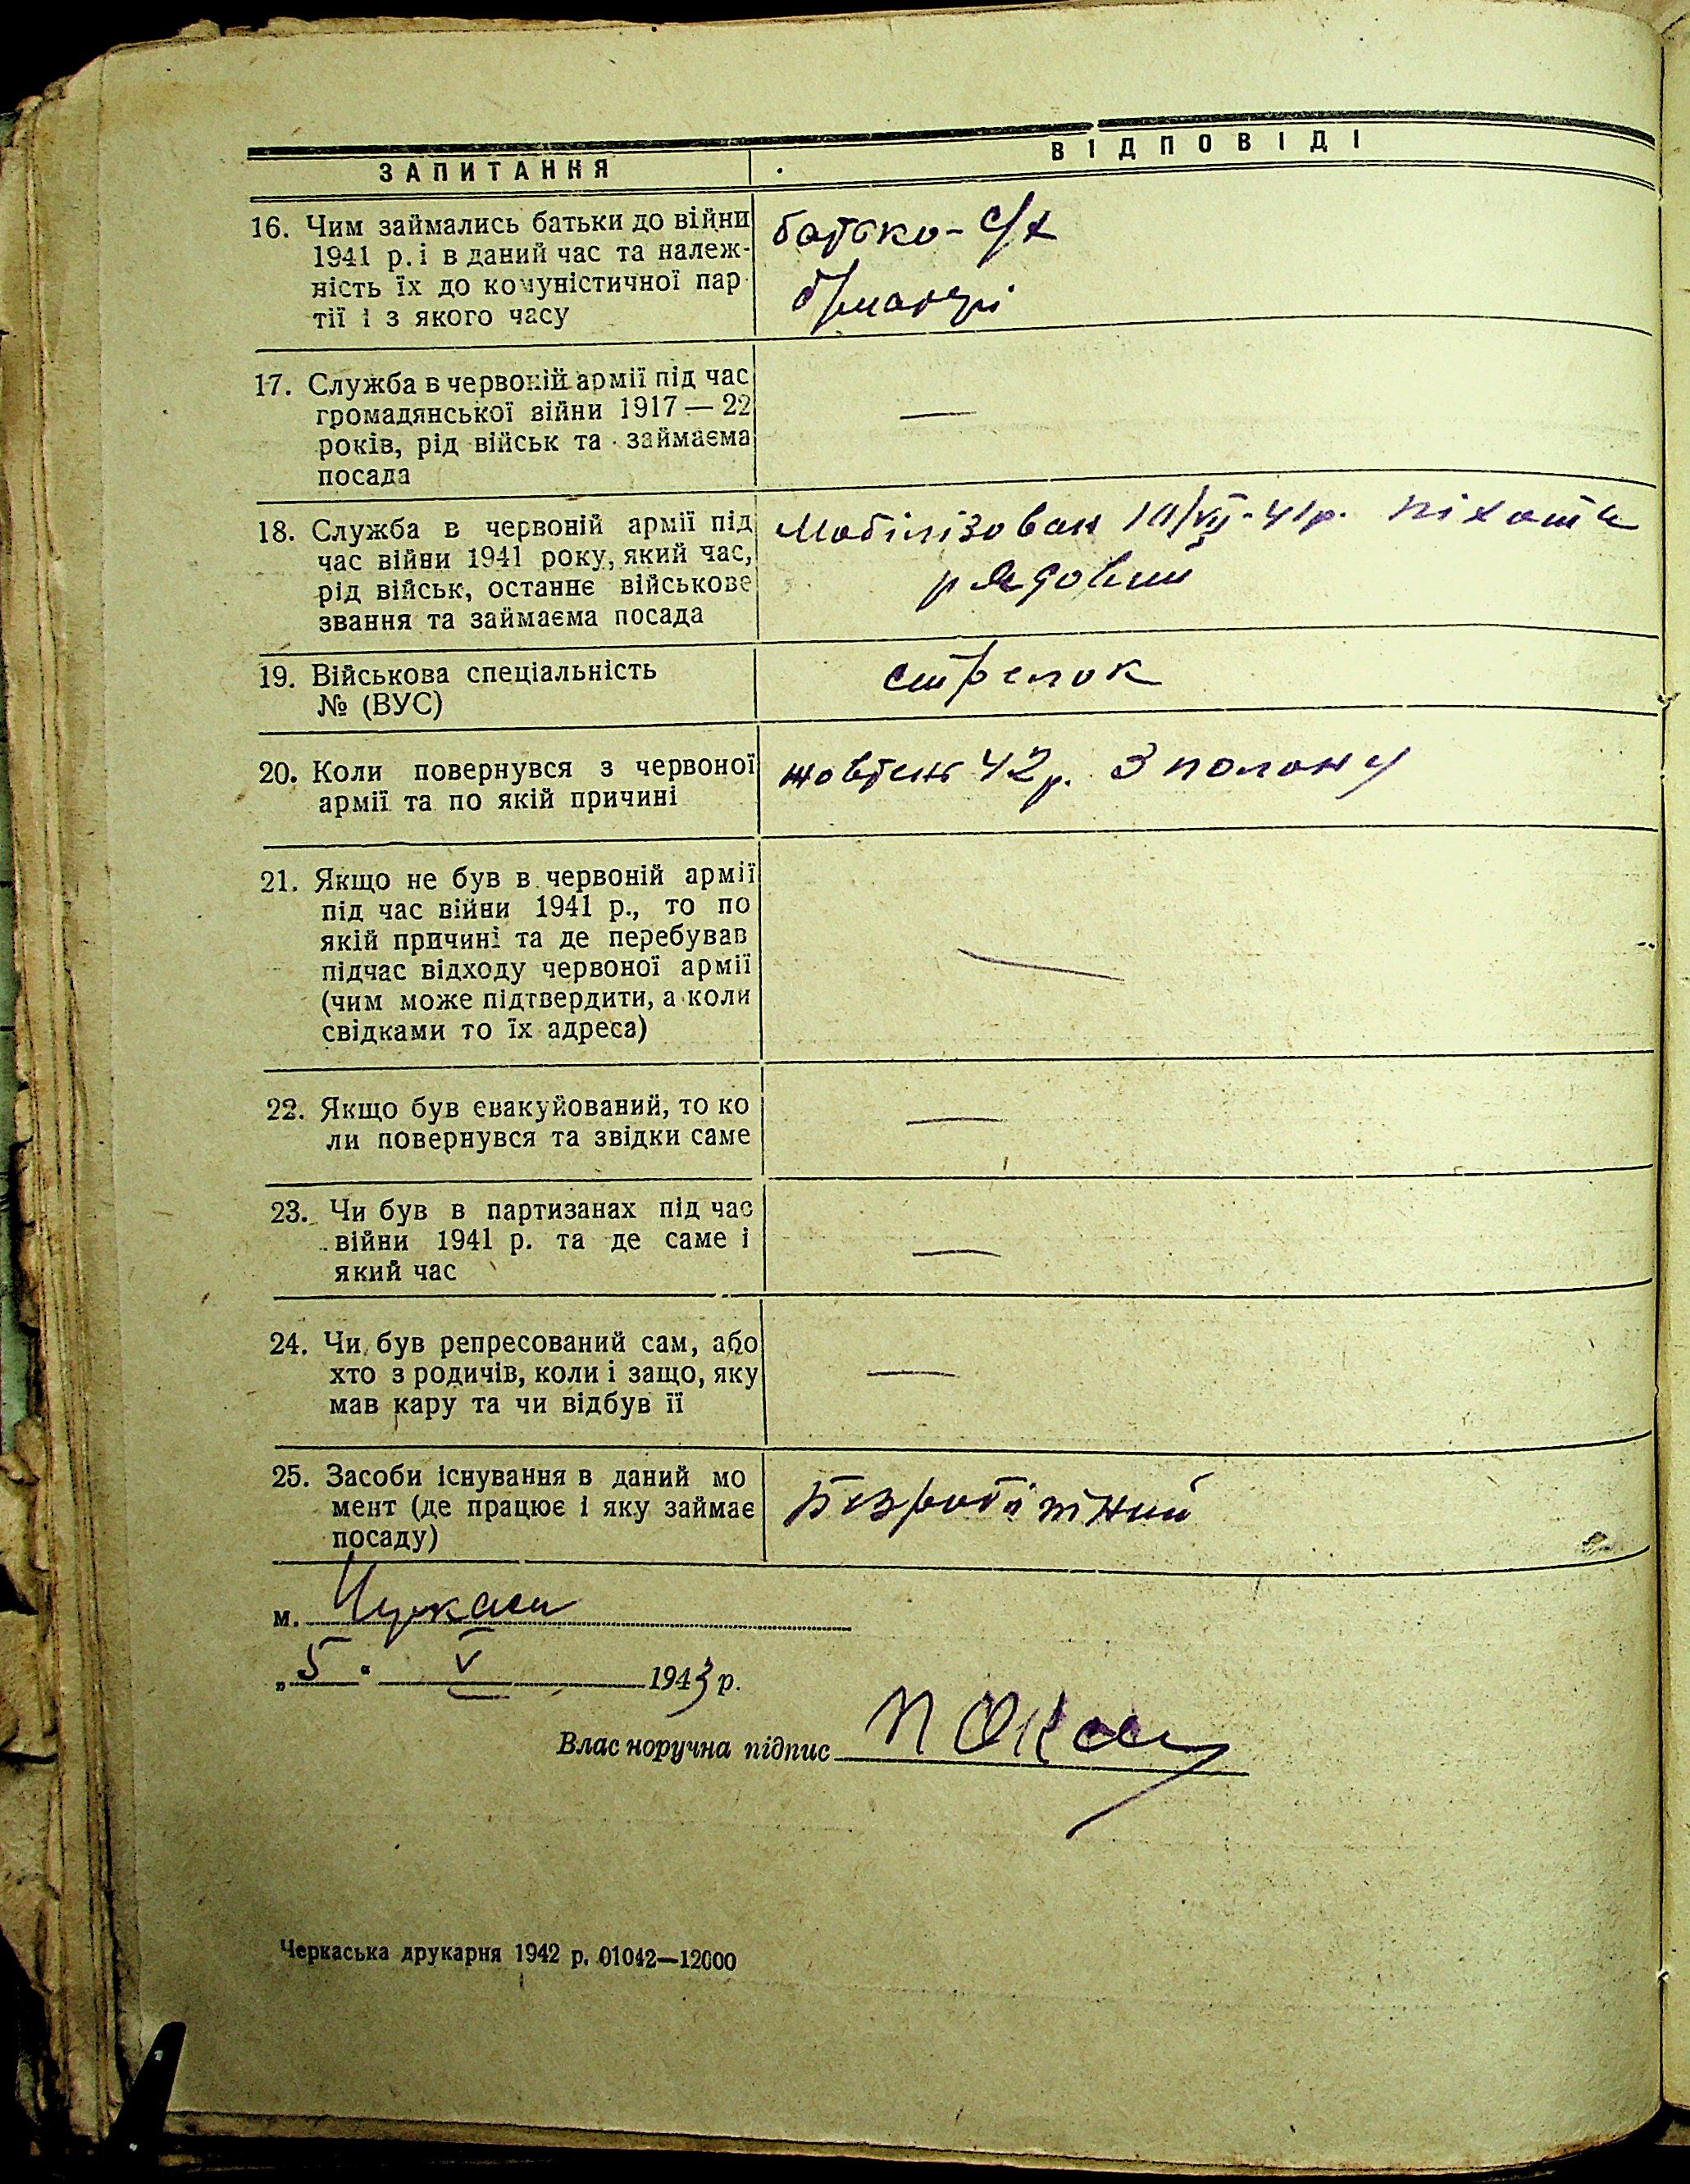 ЗАПИТАННЯ
ВІДПОВІДІ
16. Чим займались батьки до війни
1941 р. і в даний час та належ-
ність їх до комуністичної пар-
тії і з якого часу
батько - с/х
б/матері
17. Служба в червоній армії під час
громадянської війни 1917 — 22
років, рід військ та займаєма
посада
—
18. Служба в червоній армії під
час війни 1941 року, який час,
рід військ, останнє військове
звання та займаєма посада
Мобілізован 10/VII-41р. піхота
рядовий
19. Військова спеціальність
№ (ВУС)
стрелок
20. Коли повернувся з червоної
армії та по якій причині
жовтень 42р. З полону
21. Якщо не був в червоній армії
під час війни 1941 р., то по
якій причині та де перебував
підчас відходу червоної армії
(чим може підтвердити, а коли
свідками то їх адреса)
—
22. Якщо був евакуйований, то ко
ли повернувся та звідки саме
—
23. Чи був в партизанах під час
війни 1941 р. та де саме і
який час
—
24. Чи був репресований сам, або
хто з родичів, коли і защо, яку
мав кару та чи відбув її
—
25. Засоби існування в даний мо
мент (де працює і яку займає
посаду)
Безробітний
м. Черкаси
„5“ V 1943 р.
Власноручна підпис
Черкаська друкарня 1942 р. 01042—12000